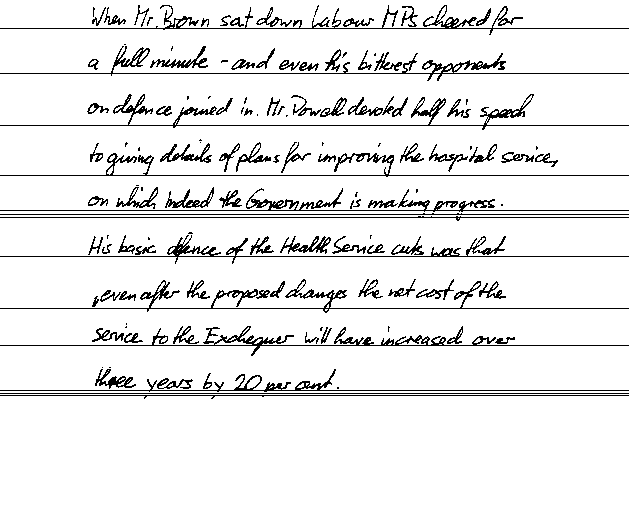 When Mr. Brown sat down Labour MPs cheered for
a full minute - and even his bitterest opponents
on defence joined in. Mr. Powell devoted half his speech
to giving details of plans for improving the hospital service,
on which indeed the Government is making progress.
His basic defence of the Health Service cuts was that
, even after the proposed changes the net cost of the
Service to the Exchequer will have increased over
three years by 20 per cent.